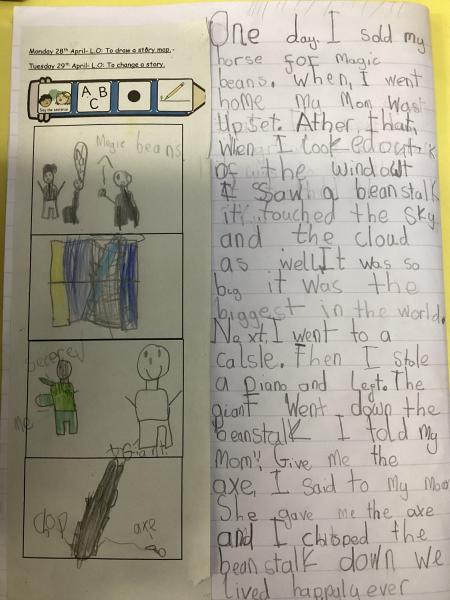 Monday 28th April- L.O: To draw a story map.
Tuesday 29th April- L.O: To change a story.
Say the sentence
A B C
Magic beans
me
giant
chop
axe
One day. I sold my
horse for magic
beans. when, I went
home my Mom was
Upset. Ather, that,
When I looked out
of the window
I Saw a beanstalk
it, touched the Sky
and the cloud
as well It was so
big it was the
biggest in the world.
Next, I went to a
calsle. Then I stole
a piano and Left. The
giant Went down the
beanstalk I told my
Mom" Give me the
axe, I said to my Mom
She gave me the axe
and I chopped the
beanstalk down we
lived happaly ever